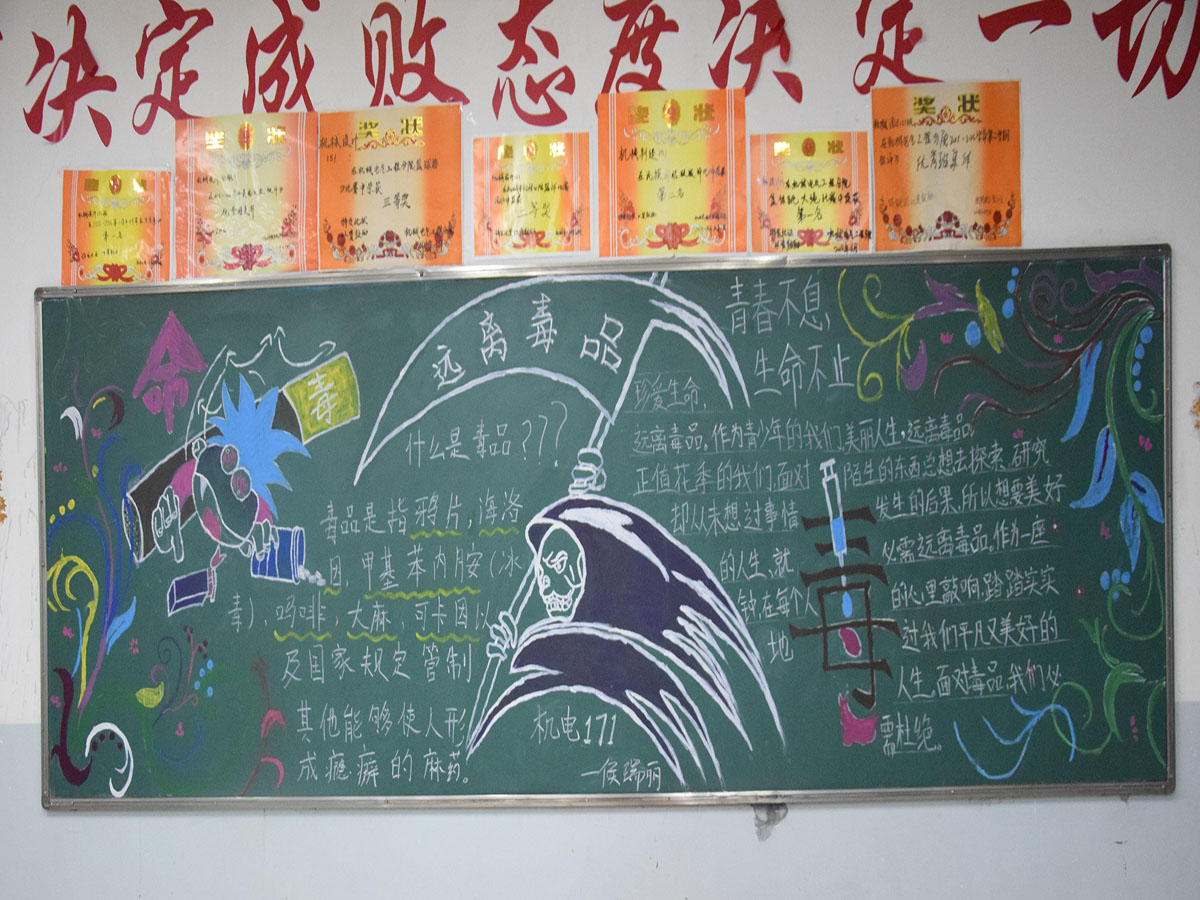 决定成败态度决定一切
奖状
奖状
机械设计
151
三等奖
奖状
二等奖
奖状
机械制造
第二名
奖状
第一名
奖状
优秀班集体
第一名
命
毒
远离毒品
什么是毒品???
毒品是指鸦片,海洛
因,甲基苯丙胺(冰
毒),吗啡,大麻,可卡因以
及国家规定管制
其他能够使人形
成瘾癖的麻药。
机电171
一侯瑞丽
青春不息,
生命不止
珍爱生命,
远离毒品,作为青少年的我们,美丽人生,远离毒品
正值花季的我们,面对陌生的东西总想去探索、研究
却从未想过事情发生的后果,所以想要美好
的人生,就必需远离毒品。作为一座
钟在每个人的心里敲响,踏踏实实
地过我们平凡又美好的
人生,面对毒品,我们必
需杜绝。
毒